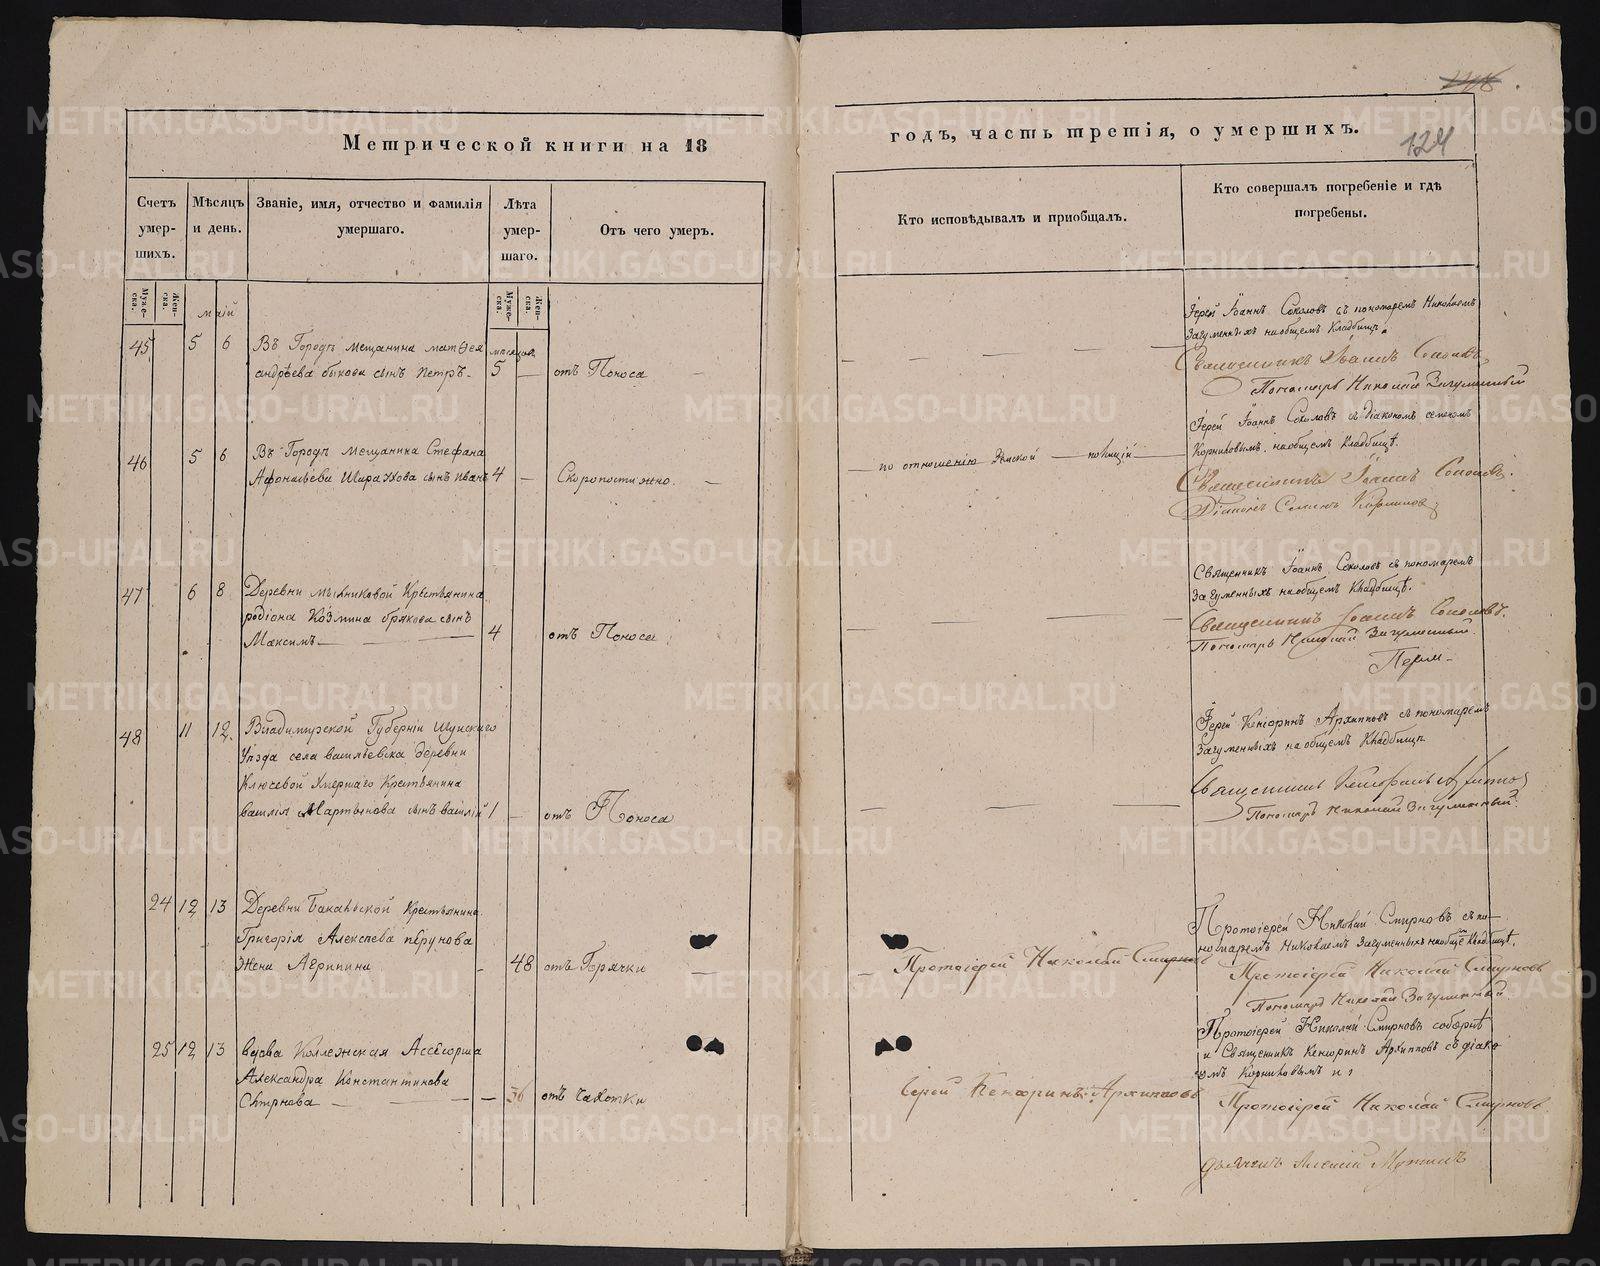 1218
Метрической книги на 18
годъ, часть третія, о умершихъ.
124
Счетъ умер- шихъ.
Мѣсяцъ и день.
Званіе, имя, отчество и фамилія умершаго.
Лѣта умер- шаго.
Отъ чего умеръ.
Кто исповѣдывалъ и пріобщалъ.
Кто совершалъ погребеніе и гдѣ погребены.
Муже- ска.
Жен- ска.
Муже- ска.
Жен- ска.
Маій
45 5 6 Въ Городѣ мещанина матѳея месяцовъ
андрѣева быкова сынъ петръ - 5 — отъ Поноса
Іерей Іоаннъ Соколовъ съ пономаремъ Николаемъ
Загуменныхъ наобщемъ Кладбищѣ.
Священникъ Іоаннъ Соколовъ
Пономарь Николай Загуменный
46 5 6 Въ Городѣ мещанина Стефана
Афонасіева сынъ иванъ 4 — Скоропостижно.
по отношенію Земской — полиціи
Іерей Іоаннъ Соколовъ съ діакономъ семеномъ
Корниловымъ, наобщемъ Кладбищѣ.
Священникъ Іоаннъ Соколовъ.
Діаконъ Семенъ Корниловъ
47 6 8 Деревни Крестьянина
родіона Козмина брюкова сынъ
Максимъ — 4 отъ Поноса
Священникъ Іоаннъ Соколовъ съ пономаремъ
Загуменныхъ наобщемъ Кладбищѣ.
Священникъ Іоаннъ Соколовъ.
Пономарь Николай Загуменный
48 11 12 Владимирской Губерніи Шуйскаго
Уѣзда села васильевска деревни
Ключевой Умершаго Крестьянина
василія Мартынова сынъ василій 1 — отъ Поноса
Іерей Кенсоринъ Архипповъ съ пономаремъ
Загуменныхъ на общемъ Кладбищѣ
Священникъ Кенсоринъ Архипповъ
Пономарь Николай Загуменный.
24 12 13 Деревни Крестьянина
Григорія Алексѣева перунова
Жена Агрипина - 48 отъ Горячки
Протоіерей Николай Смирновъ
Протоіерей Николай Смирновъ съ по-
номаремъ Николаемъ Загуменныхъ наобщемъ Кладбищѣ.
Протоіерей Николай Смирновъ
Пономарь Николай Загуменный
25 12 13 вдова Коллежская Ассесорша
Александра Константинова
— — 36 отъ Чахотки
Іерей Кенсоринъ Архипповъ
Протоіерей Николай Смирновъ соборнѣ
и Священникъ Кенсоринъ Архипповъ съ діако
омъ Корниловымъ
Протоіерей Николай Смирновъ
дьячекъ Алексій
METRIKI.GASO-URAL.RU